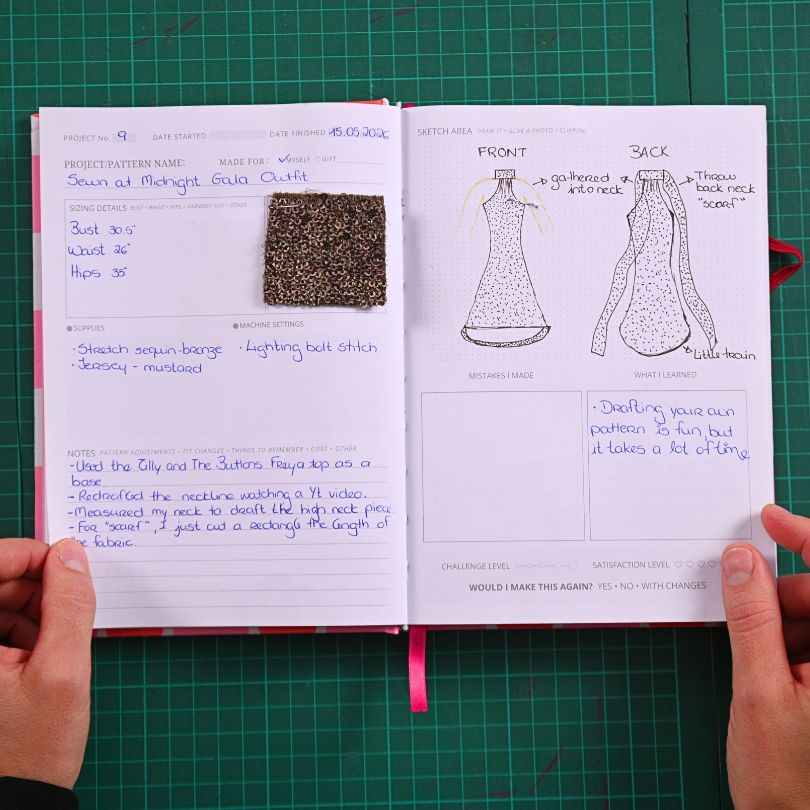 PROJECT No. 9 DATE STARTED DATE FINISHED 15.05.2026
PROJECT/PATTERN NAME: MADE FOR: ✓MYSELF ○GIFT
Sewn at Midnight Gala Outfit
SIZING DETAILS BUST • WAIST • HIPS • GARMENT SIZE • OTHER
Bust 30.5"
Waist 26"
Hips 35"
SUPPLIES
· Stretch sequin-bronze
· Jersey - mustard
MACHINE SETTINGS
· Lighting bolt stitch
NOTES PATTERN ADJUSTMENTS • FIT CHANGES • THINGS TO REMEMBER • COST • OTHER
- Used the Tilly and The Buttons Freya top as a
base
- Redrafted the neckline watching a Yt video.
- Measured my neck to draft the high neck piece.
- For "scarf", I just cut a rectangle the length of
fabric.
SKETCH AREA DRAW IT • GLUE A PHOTO / CLIPPING
FRONT
gathered
into neck
BACK
Throw
back neck
"scarf"
Little train
MISTAKES I MADE
WHAT I LEARNED
· Drafting your own
pattern is fun, but
it takes a lot of time
CHALLENGE LEVEL
SATISFACTION LEVEL
WOULD I MAKE THIS AGAIN? YES • NO • WITH CHANGES